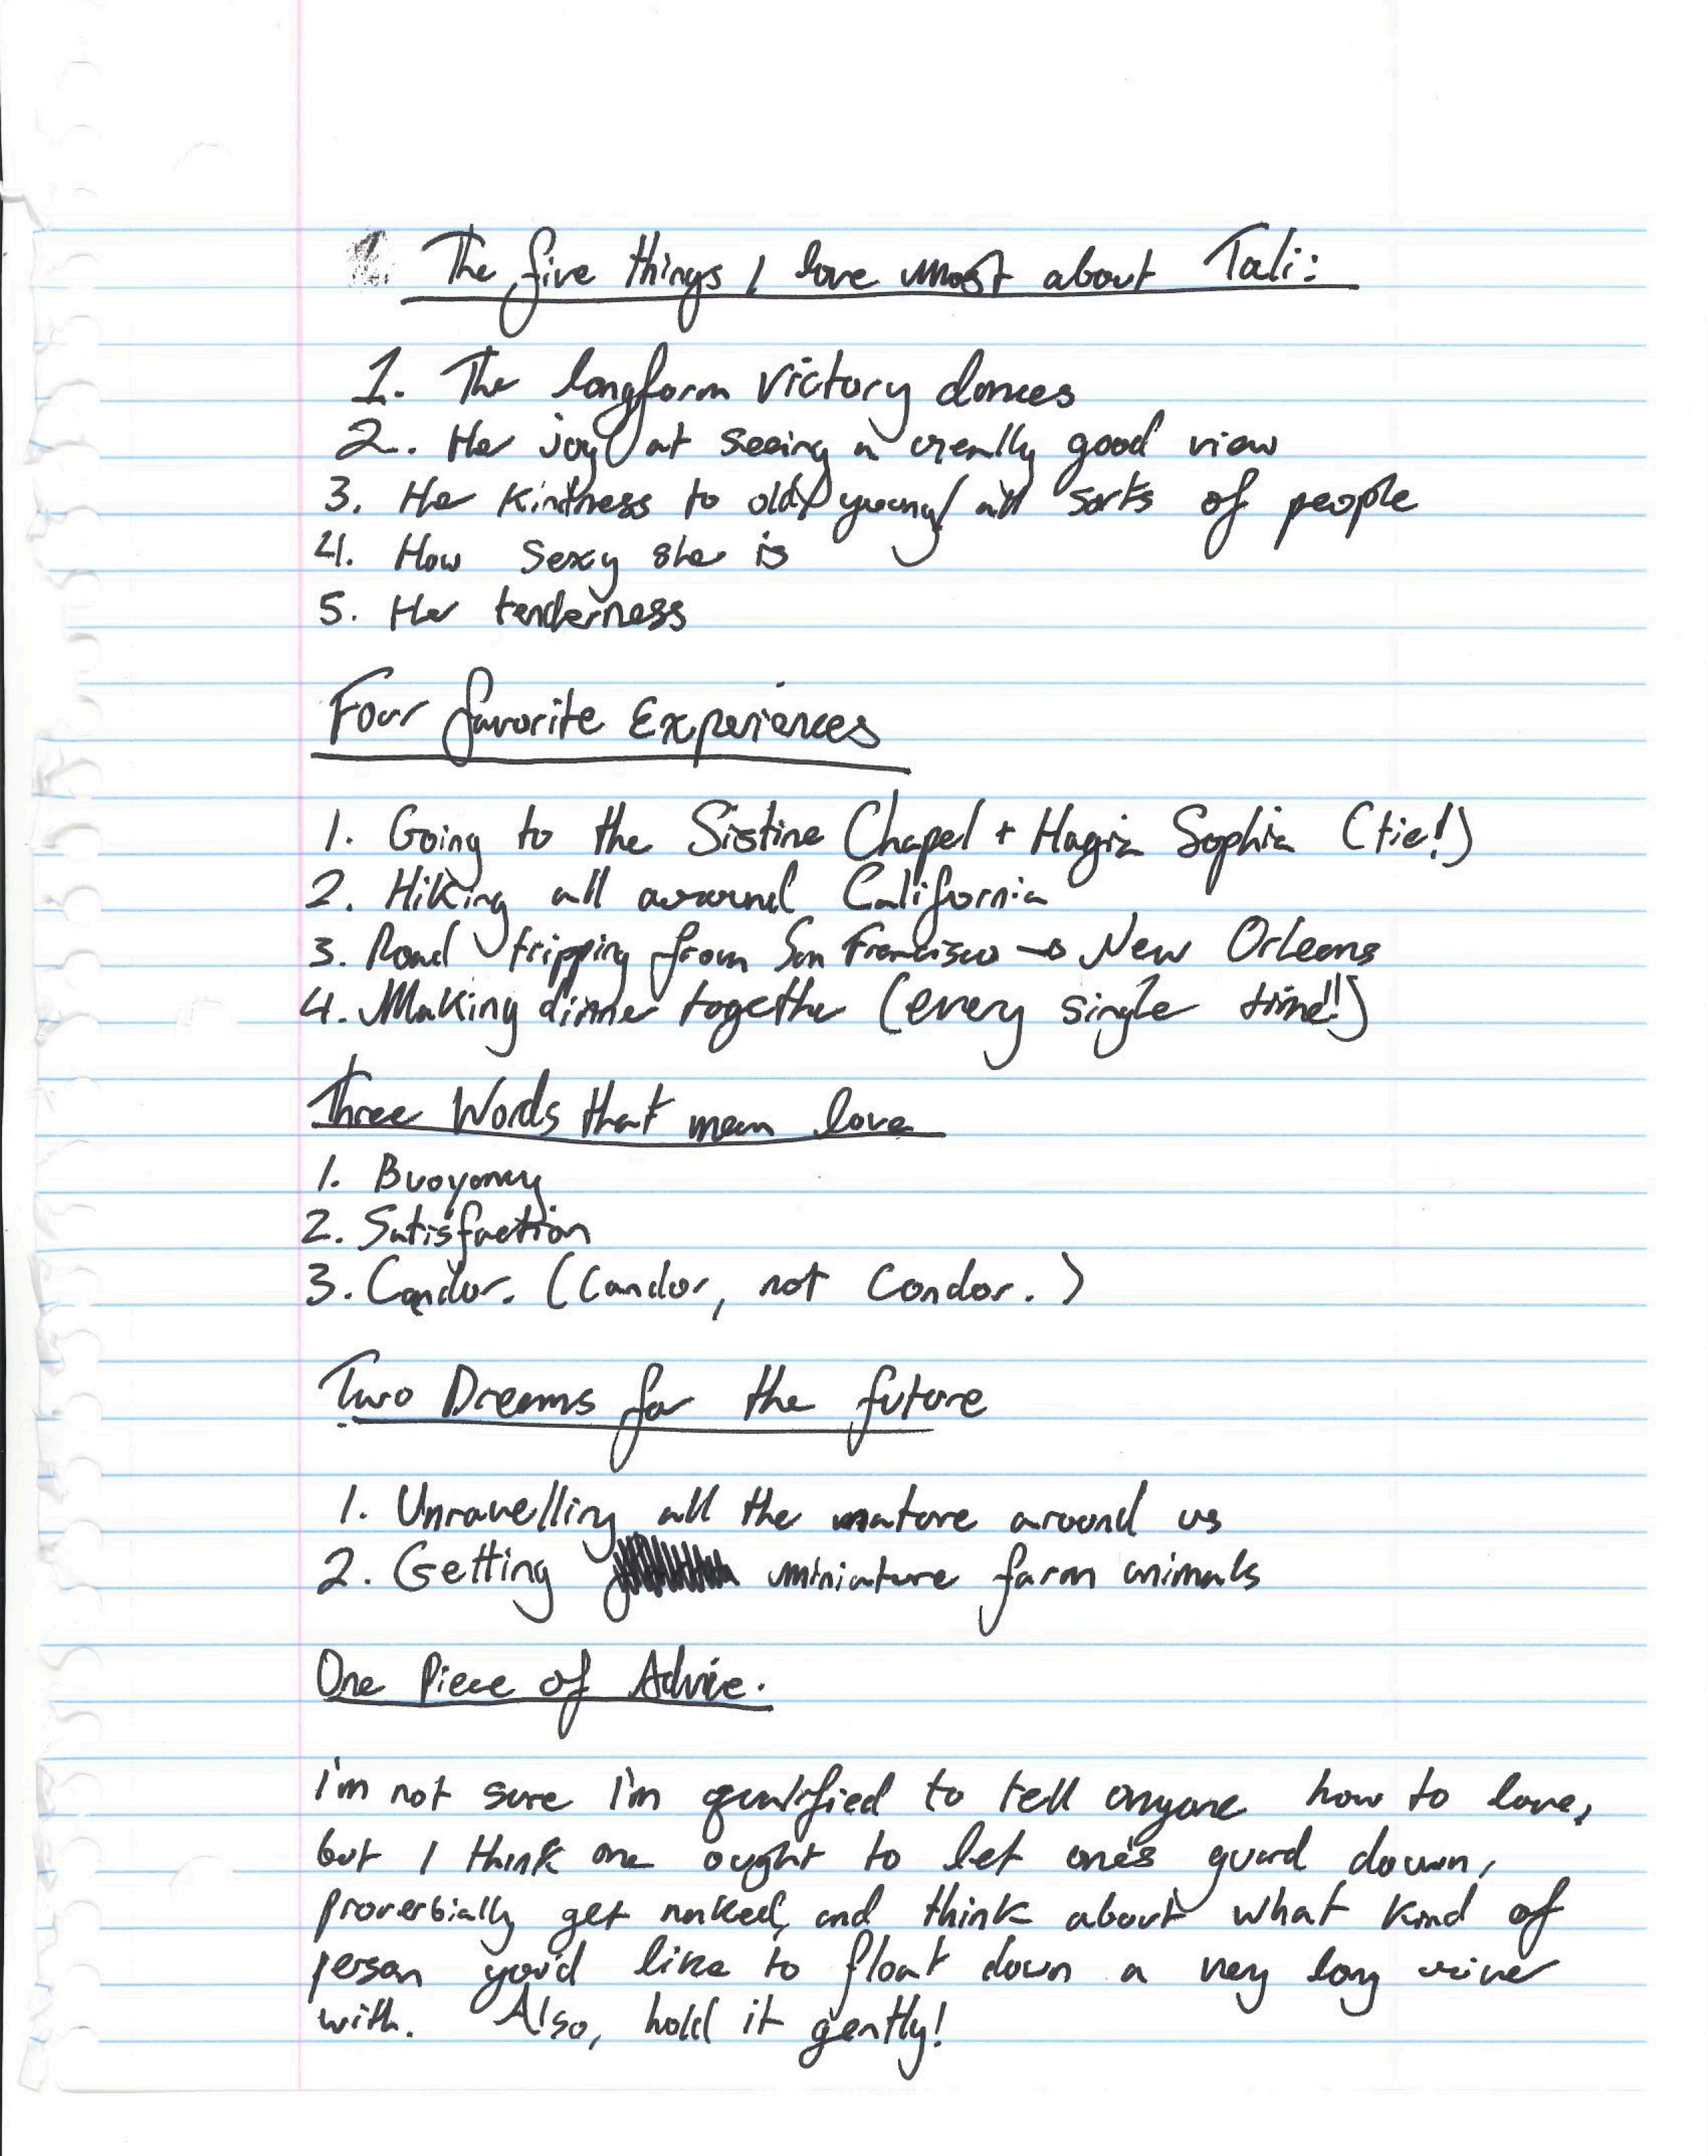 The five things I love most about Tali:
1. The longform victory dances
2. Her joy at seeing a really good view
3. Her kindness to old/young/all sorts of people
4. How sexy she is
5. Her tenderness
Four favorite Experiences
1. Going to the Sistine Chapel + Hagia Sophia (tie!)
2. Hiking all around California
3. Road tripping from San Francisco → New Orleans
4. Making dinner together (every single time!!)
Three Words that mean love
1. Buoyancy
2. Satisfaction
3. Candor. (Candor, not Condor.)
Two Dreams for the future
1. Unravelling all the nature around us
2. Getting miniature farm animals
One Piece of Advice.
i'm not sure I'm qualified to tell anyone how to love,
but I think one ought to let one's guard down,
proverbially get naked, and think about what kind of
person you'd like to float down a very long river
with. Also, hold it gently!